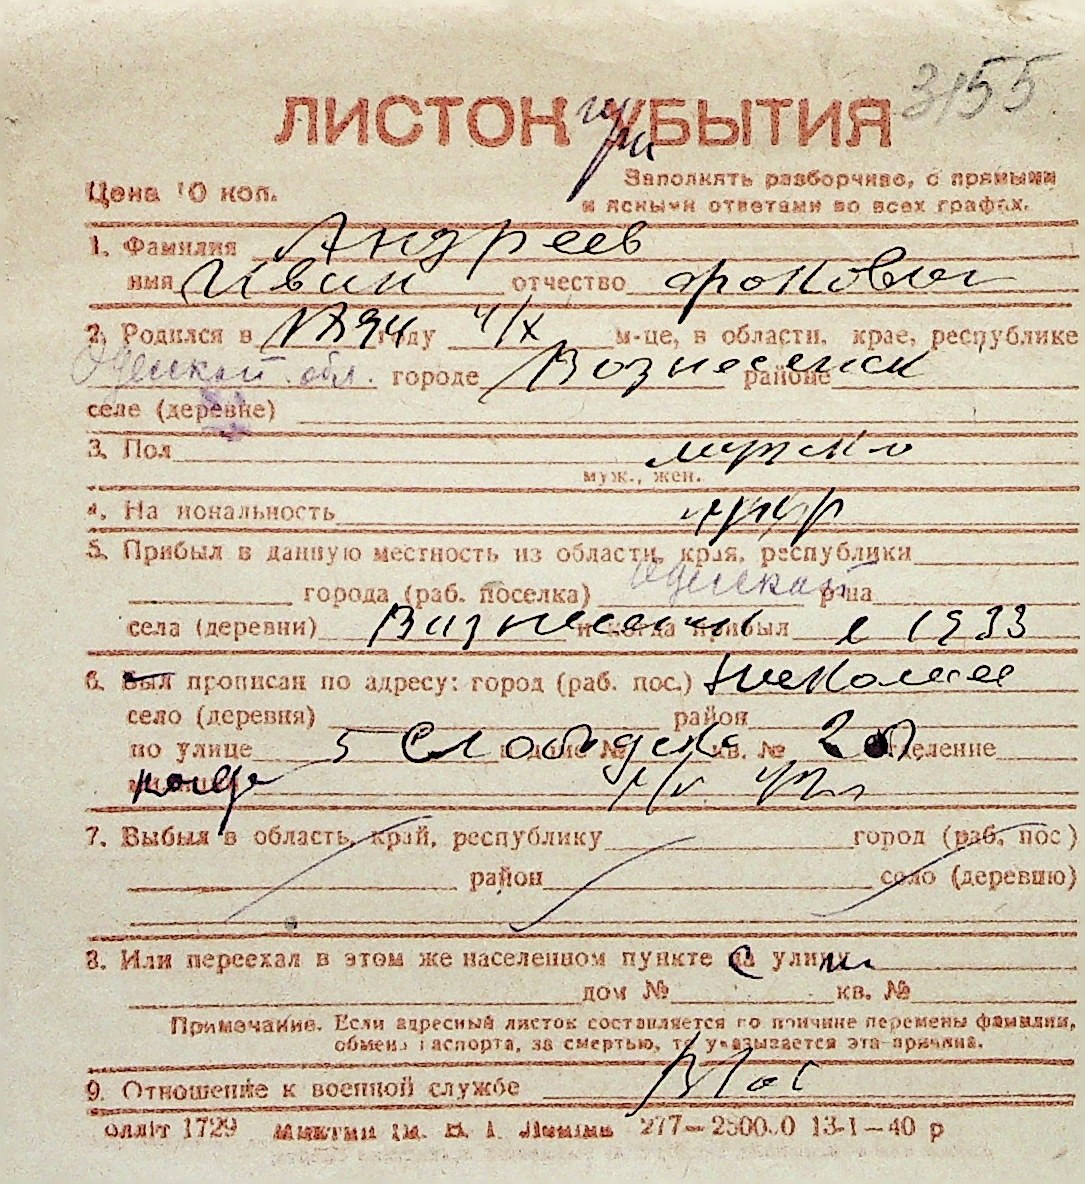 3155
ЛИСТОК УБЫТИЯ
при
Цена 10 коп.
Заполнять разборчиво, с прямыми
и ясными ответами во всех графах.
1. Фамилия Андреев
имя Иван отчество Фокович
2. Родился в 1894 году 4/X м-це, в области, крае, республике
Одесской обл. городе Вознесенск районе
селе (деревне)
3. Пол мужско
муж., жен.
4. На иональность укр
5. Прибыл в данную местность из области, края, республики
города (раб. поселка) Одесской р-на
села (деревни) Вазнесенск и когда прибыл с 1933
6. Был прописан по адресу: город (раб. пос.) Николаев
село (деревня) район
по улице 5 Слободск дом № кв. № 20 отделение
милиции
7. Выбыл в область, край, республику город (раб. пос)
район село (деревню)
8. Или переехал в этом же населенном пункте на улицу
дом № кв. №
Примечание. Если адресный листок составляется по причине перемены фамилии,
обмена паспорта, за смертью, то указывается эта причина.
9. Отношение к военной службе
олліт 1729 277—2500.0 13-1—40 р